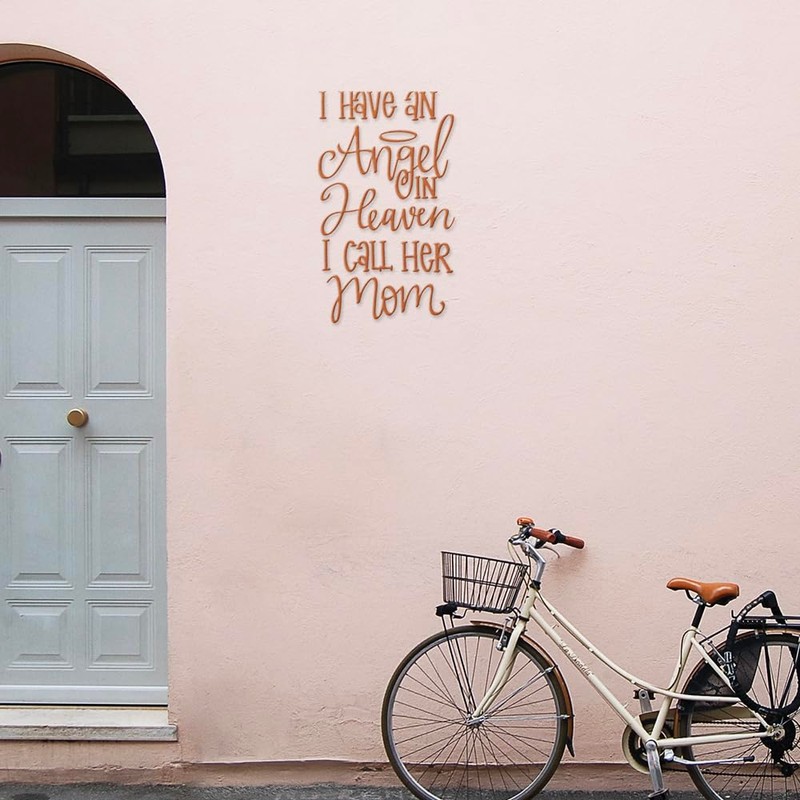 I HAVE AN
Angel
IN
Heaven
I CALL HER
Mom